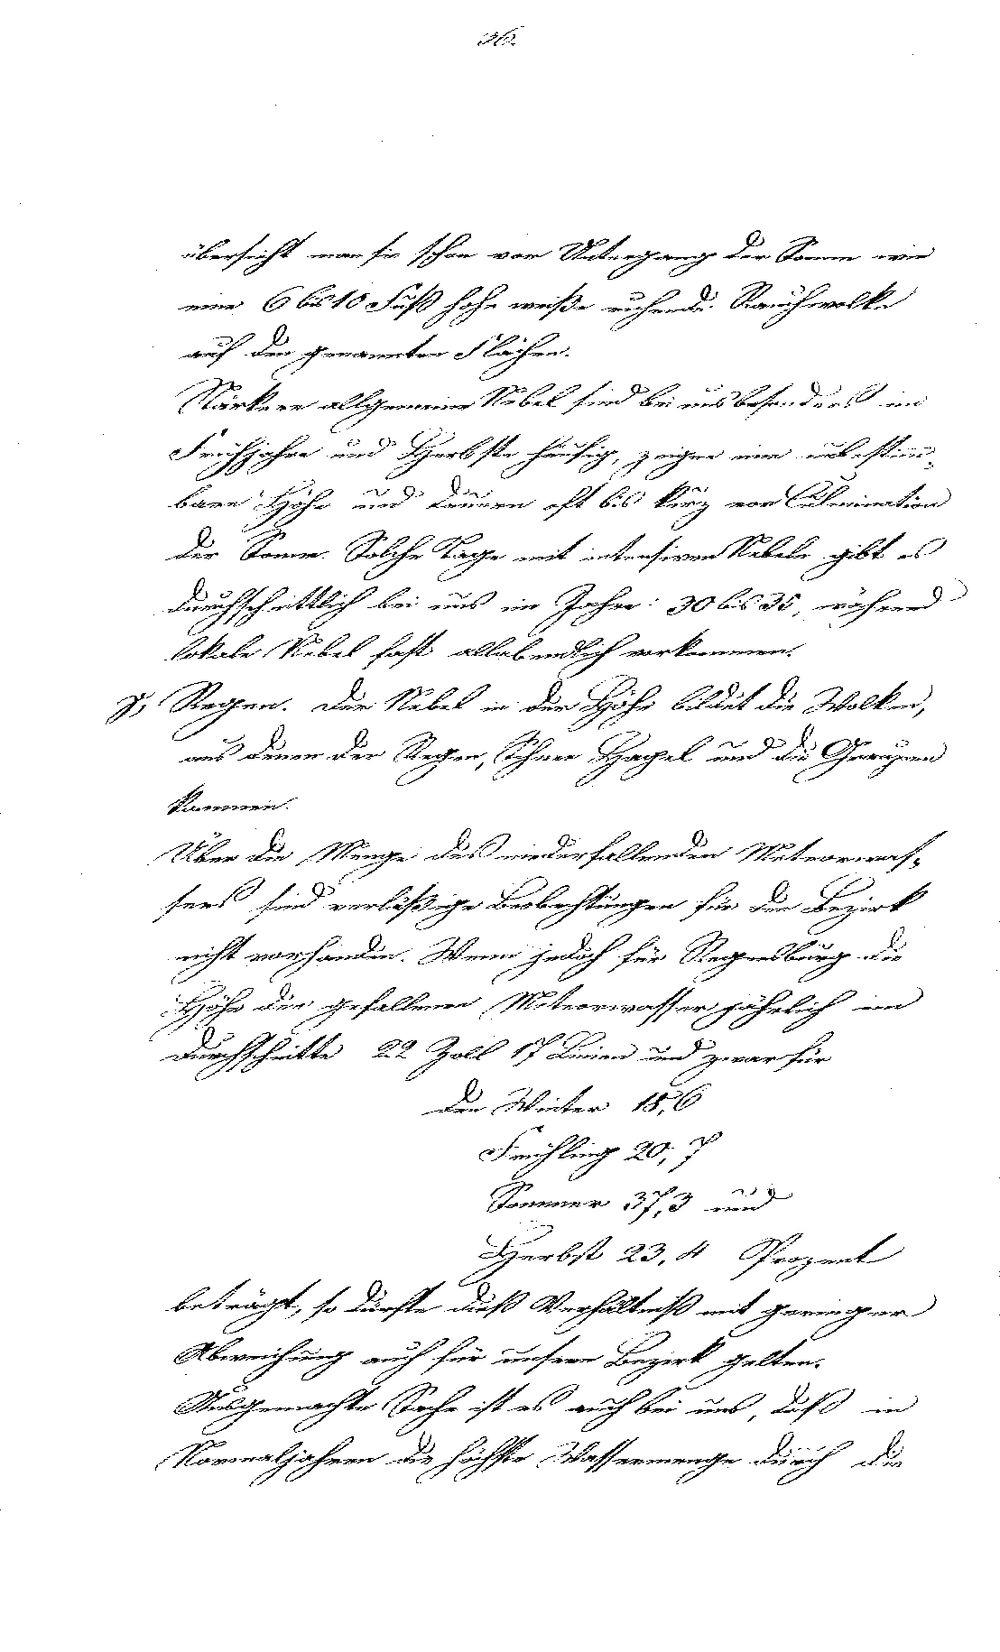 36.
übersieht man sie schon vor Untergang der Sonne wie
eine 6 bis 10 Fuß hohe weiße ruhende Rauchwolke
auf den genannten Flächen.
Stärkere allgemeine Nebel sind bei uns besonders im
Frühjahre und Herbste häufig, zeigen eine unbestimm-
bare Höhe und dauern oft bis kurz vor Culmination
der Sonne. Solche Tage mit intensiven Nebeln gibt es
durchschnittlich bei uns im Jahre: 30 bis 35, während
lokale Nebel fast allabendlich vorkommen.
Regen. Der Nebel in der Höhe bildet die Wolken,
aus denen der Regen, Schnee Hagel und die Graupen
kommen.
Über die Menge des niederfallenden Meteorwas-
sers sind verläßige Beobachtungen für den Bezirk
nicht vorhanden. Wenn jedoch für Regensburg die
Höhe der gefallenen Meteorwasser jährlich im
Durchschnitte 22 Zoll 17 Linien und zwar für
den Winter 18,6
Frühling 20,7
Sommer 37,3 und
Herbst 23,4 Prozent
beträgt, so dürfte dieß Verhältniß mit geringer
Abweichung auch für unsern Bezirk gelten.
Ausgemachte Sache ist es auch bei uns, daß in
Normaljahren die höchste Wassermenge durch die